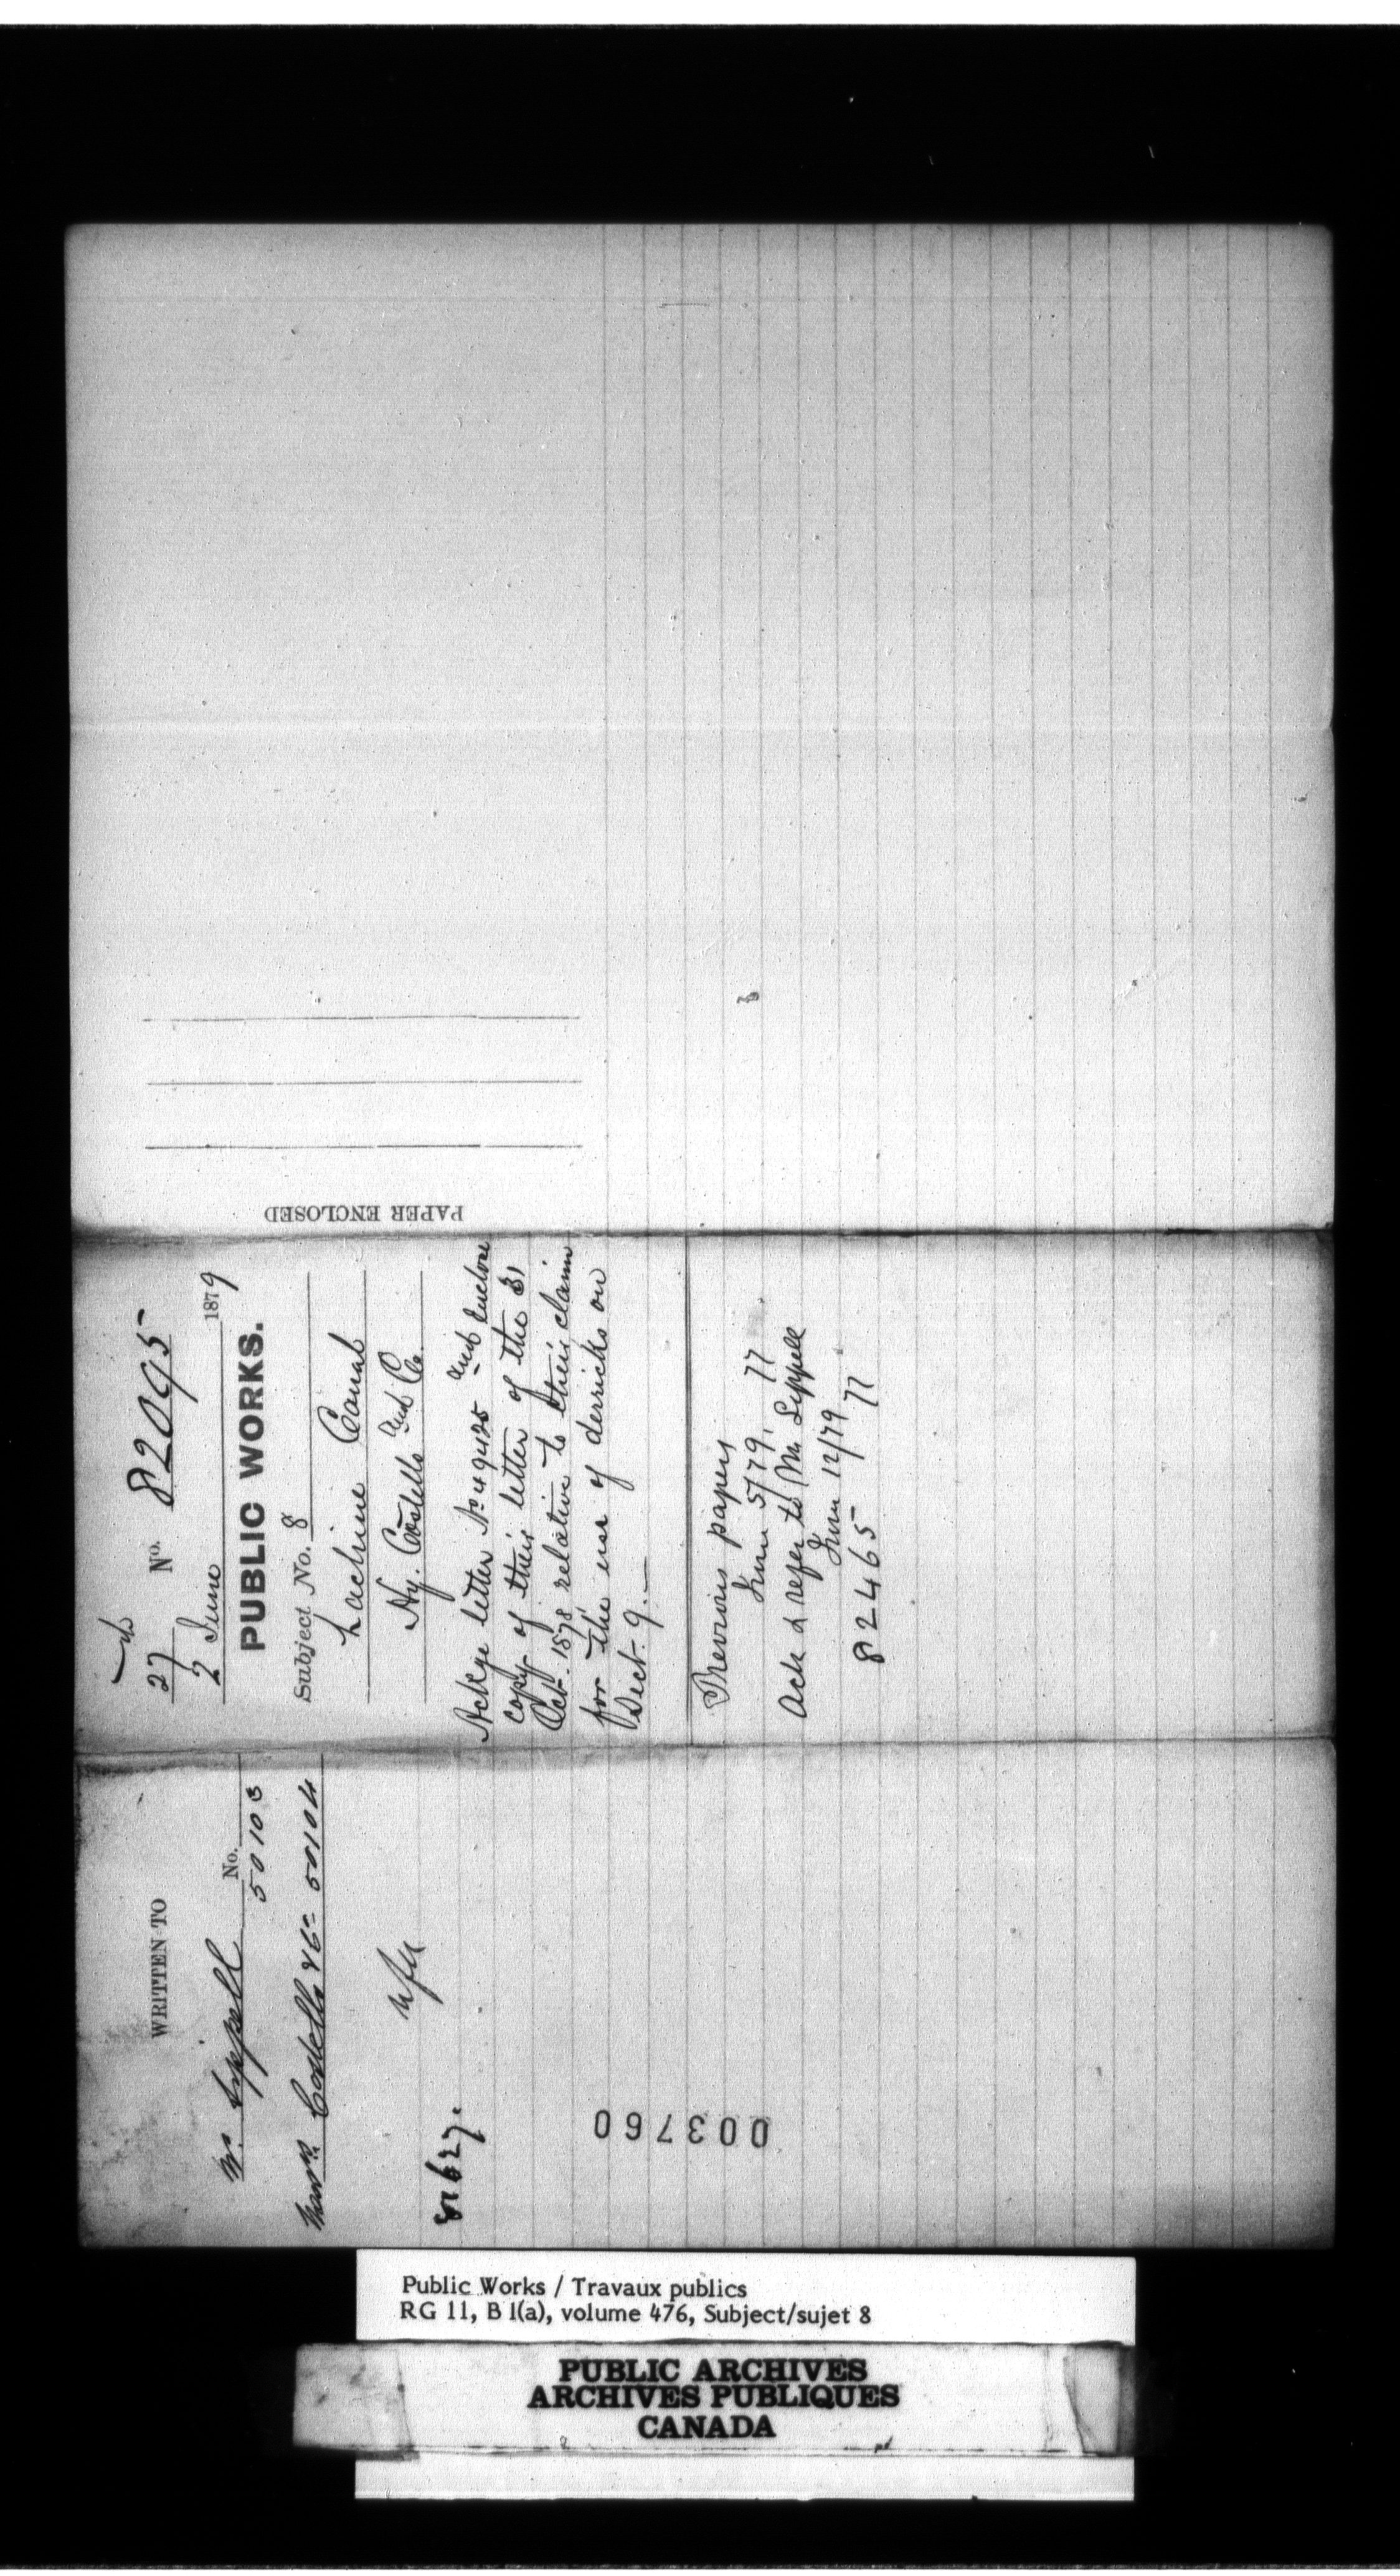 WRITTEN TO
Mr. Sippell No. 50103
Messrs. Costello & Co 50104
81627.
003760
27 No. 82095
2 June 1879
PUBLIC WORKS.
Subject No. 8
Lachine Canal
Hy. Costello and Co.
Ackge letter No 49425 and enclose
copy of their letter of the 31
Oct. 1878 relative to their claim
for the use of derricks on
Sect. 9.—
Previous papers
June 5/79. 77
Ack & refer to Mr. Sippell
June 12/79
82465 77
PAPER ENCLOSED
Public Works / Travaux publics
RG 11, B 1(a), volume 476, Subject/sujet 8
PUBLIC ARCHIVES
ARCHIVES PUBLIQUES
CANADA